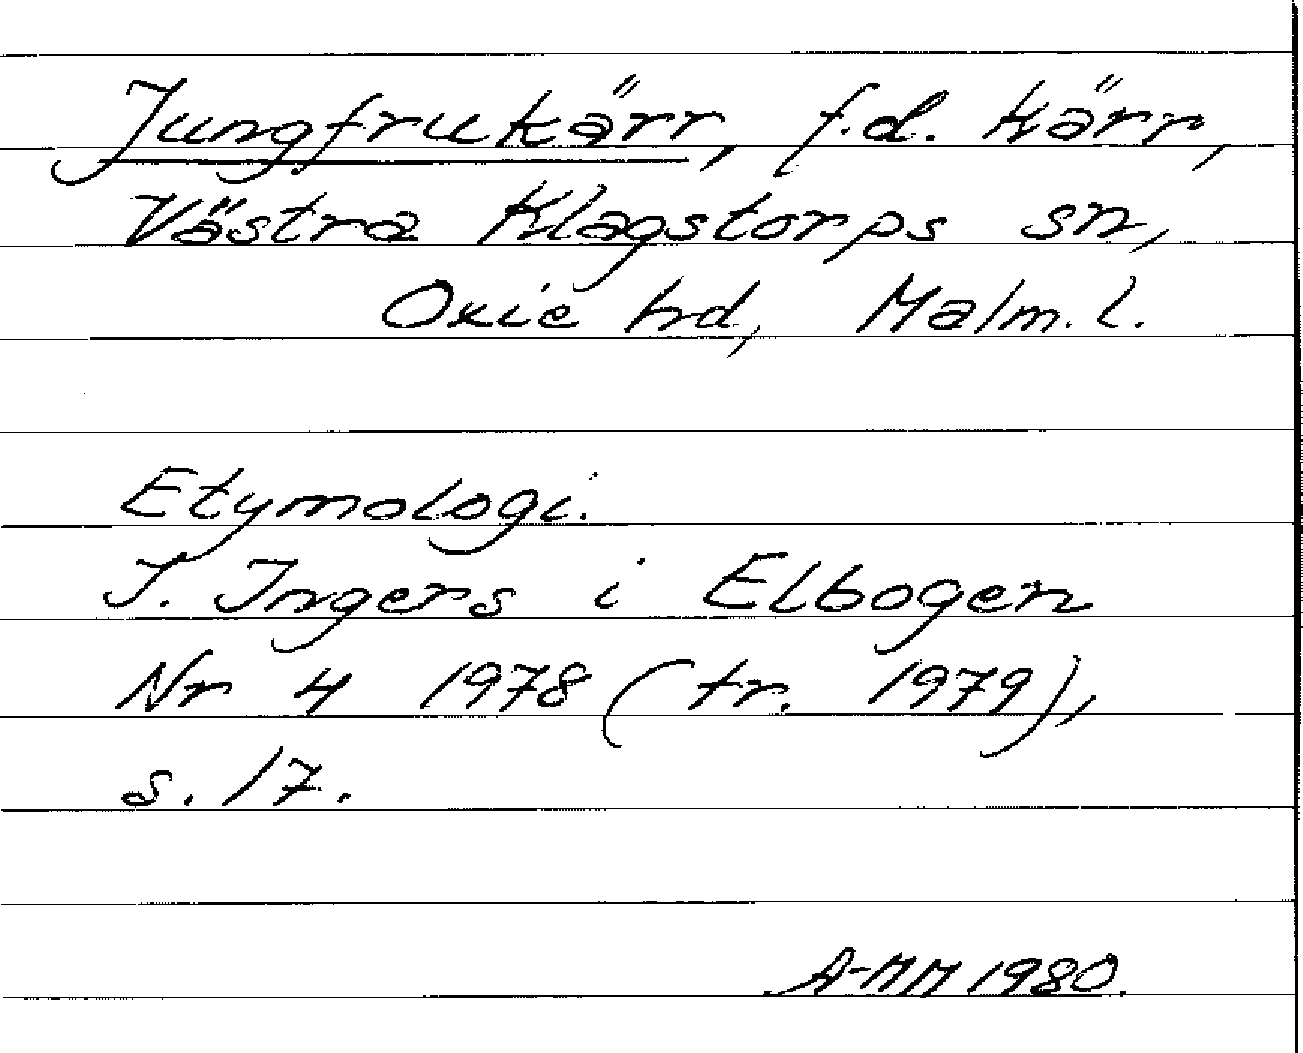 Jungfrukärr, f.d. kärr,
Västra Klagstorps sn,
Oxie hd, Malm. l.
Etymologi.
I. Ingers i Elbogen
Nr 4 1978 (tr. 1979),
s. 17.
A-MM 1980.